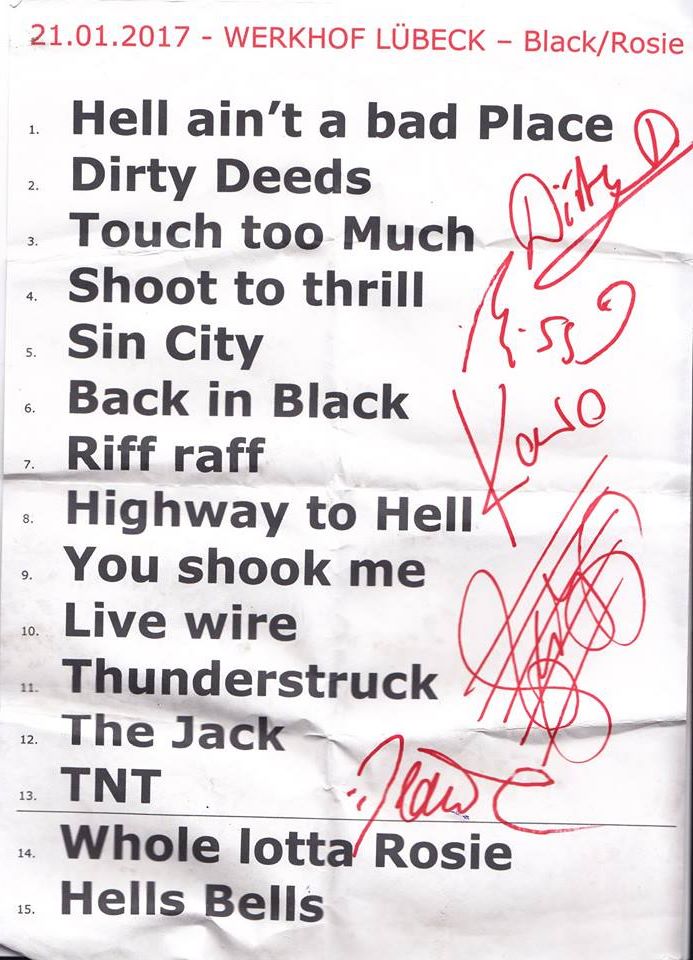 21.01.2017 - WERKHOF LÜBECK – Black/Rosie
1. Hell ain't a bad Place
2. Dirty Deeds
3. Touch too Much
4. Shoot to thrill
5. Sin City
6. Back in Black
7. Riff raff
8. Highway to Hell
9. You shook me
10. Live wire
11. Thunderstruck
12. The Jack
13. TNT
14. Whole lotta Rosie
15. Hells Bells
Dirty D